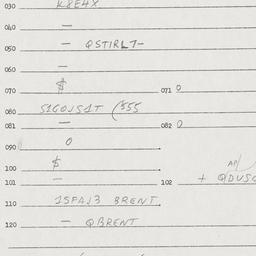 030 K8E4X
040 —
050 — QSTIRL7-
060 —
070 $ 071 0
080 S1GOJS1T (555
081 — 082 0
090 0
100 $
101 — 102 + QDUSC
110 1SFAJ3 BRENT
120 — QBRENT